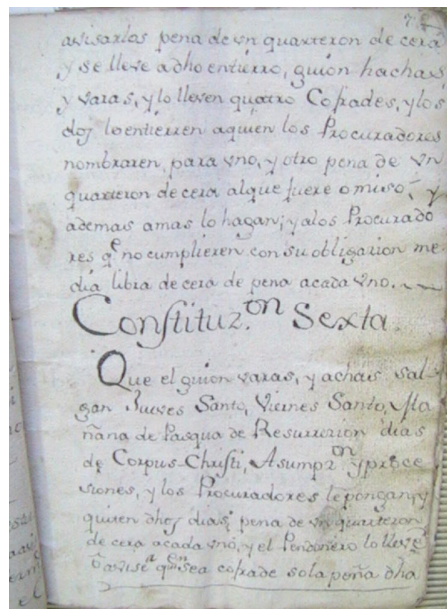 avisarlos pena de vn quarteron de cera
y se lleve a dho entierro, guion hachas
y varas, y lo lleven quatro Cofrades, y los
dos lo entierren aquien los Procuradores
nombraren, para vno, y otro pena de vn
quarteron de cera alque fuere omiso, y
ademas amas lo hagan; y alos Procurado
res q.e no cumplieren con su obligazion me
dia libra de cera de pena acada vno.
Constituz.on Sexta.
Que el guion varas, y achas sal-
gan Jueves Santo, Viernes Santo, Ma
ñana de Pasqua de Resurrezion dias
de Corpus Christi, Asumpz.on y proce
siones, y los Procuradores le pongan, y
quiten dhos dias, pena de vn quarteron
de cera acada vno, y el Pendonero lo lleve
sea cofrade sola pena dha